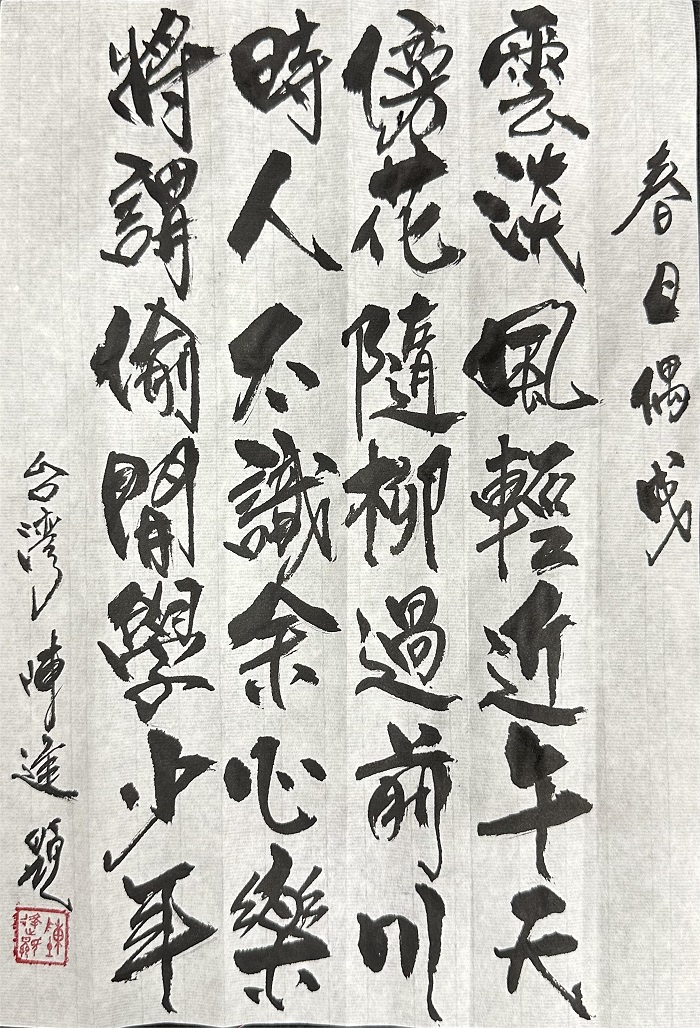 春日偶成
雲淡風輕近午天
傍花隨柳過前川
時人不識余心樂
將謂偷閒學少年
台湾 陳逢顯